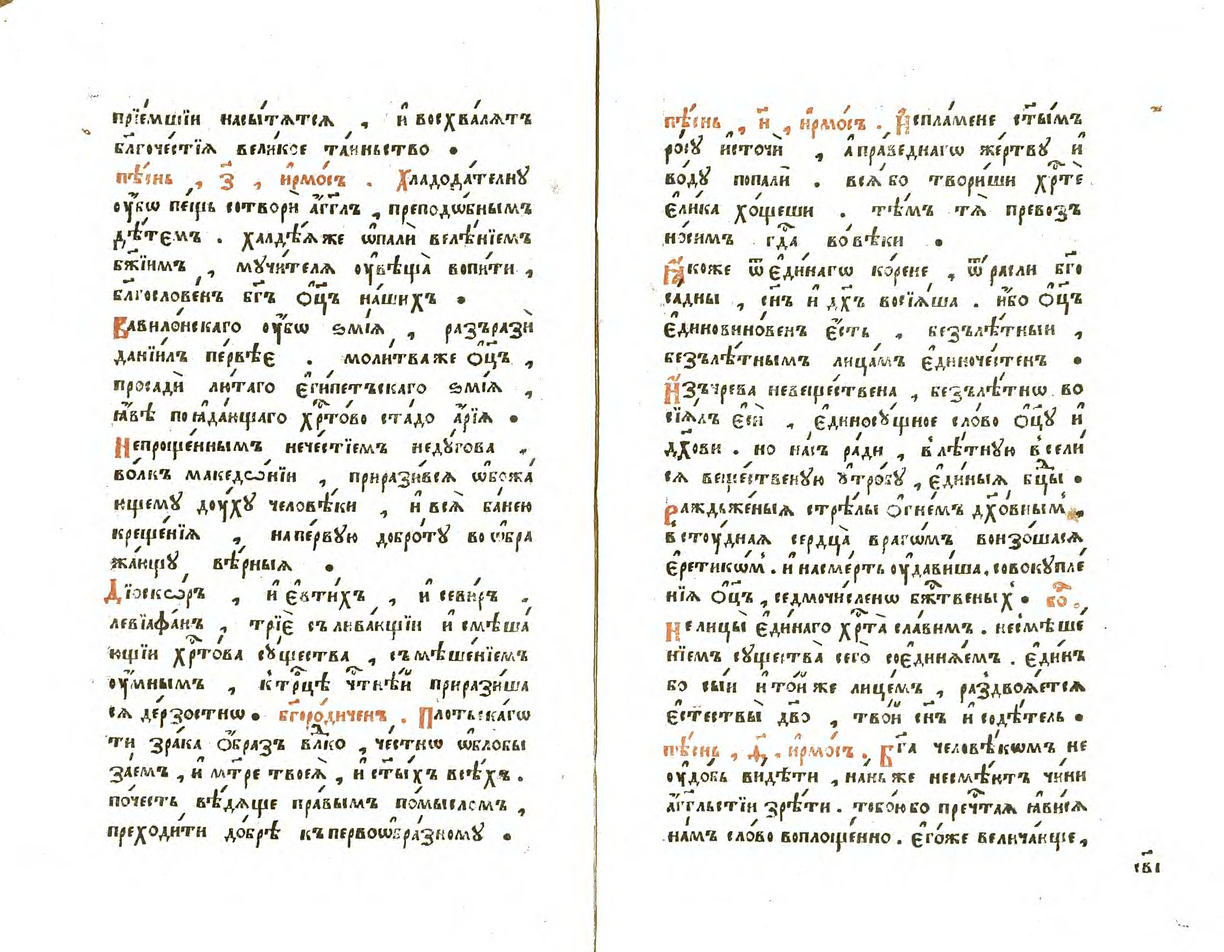 прїе́мшїи насы́тѧтсѧ , и҆ восхва́лѧтъ
бл҃гоче́стїѧ вели́кое та́иньство .
пѣ́снь , з҃ , і҆рмо́съ . Хладода́телнꙋ
ᲂу҆́бѡ пе́щь сотворѝ а҆́гг҃лъ , преподѡ́бнымъ
дѣ́темъ . халдѣ́ѧже ѡ҆палѝ велѣ́нїемъ
бж҃їимъ , мꙋчи́телѧ ᲂу҆вѣща̀ вопи́ти ,
бл҃гослове́нъ бг҃ъ ѻ҆ц҃ъ на́шихъ .
Вавило́нскаго ᲂу҆́бѡ ѕмі́ѧ , разъразѝ
данїи́лъ пе́рвѣе . моли́тваже ѻ҆ц҃ъ ,
просадѝ лю́таго є҆гі́петъскаго ѕмі́ѧ ,
ꙗ҆́вѣ поꙗ҆да́ющаго хрⷭ҇то́во ста́до а҆́рїѧ .
Непроще́ннымъ нече́стїемъ недꙋ́гова ,
во́лкъ македо́нїи , приразі́всѧ ѡ҆божа́
ющемꙋ дꙋ́хꙋ человѣ́ки , и҆ всѧ̀ ба́нею
креще́нїѧ , напе́рвꙋю добро́тꙋ воѡбра
жа́ющꙋ вѣ́рныѧ .
Дїѡ́скоръ , и҆ є҆втѷ́хъ , и҆ севи́ръ ,
левїаѳа́нъ , трїѐ съливаю́щїи и҆ смѣша́
ющїи хрⷭ҇то́ва сꙋщества̀ , съмѣше́нїемъ
ᲂу҆́мнымъ , к҆трⷪ҇цѣ чтⷭ҇нѣ́й приразі́ша
сѧ де́рзостнѡ . бг҃оро́диченъ . Плотьска́гѡ
ти зра́ка ѻ҆́бразъ влⷣко , че́стнѡ ѡ҆блобы
за́емъ , и҆ мт҃ре твоеѧ̀ , и҆ ст҃ы́хъ всѣ́хъ .
по́честь вѣ́дѧще пра́вымъ по́мысломъ ,
преходи́ти до́брѣ къпервоѡбра́зномꙋ .
пѣ́снь , и҃ , і҆рмо́съ . И҆спла́мене ст҃ы́мъ
ро́сꙋ и҆сточѝ , а҆ пра́веднагѡ же́ртвꙋ и҆
во́дꙋ попалѝ . всѧ́ бо твори́ши хрⷭ҇тѐ
є҆ли́ка хо́щеши . тѣ́мъ тѧ̀ превоз̾
но́симъ гдⷭ҇а во вѣ́ки .
Ꙗ҆́коже ѿ є҆ди́нагѡ ко́рене , ѿра́сли бг҃о
са́дны , сн҃ъ и҆ дх҃ъ восїѧ́ша . и҆́бо ѻ҆ц҃ъ
є҆диновино́венъ є҆́сть , безълѣ́тныи ,
безълѣ́тнымъ лица́мъ є҆диноче́стенъ .
И҆зъчре́ва невеще́ствена , безълѣ́тнѡ во
сїѧ́лъ є҆сѝ , є҆диносꙋ́щное сло́во ѻ҆ц҃ꙋ̀ и҆
дх҃ови . но на́съ ра́ди , влѣ́тнꙋю всели́
сѧ веще́ственꙋю ᲂу҆тро́бꙋ , є҆ди́ныѧ бцⷣы .
Раждьже́ныѧ стрѣ́лы ѻ҆гне́мъ дх҃о́внымъ ,
встᲂу́днаѧ сердца̀ враго́мъ вонзо́шасѧ
є҆ретикѡ́м . и҆ насме́рть ᲂу҆дави́ша . совокꙋпле́
нїѧ ѻ҆ц҃ъ , седмочи́сленѡ бжⷭ҇твены́х . бо҃ .
Не лицы̀ є҆ди́наго хрⷭ҇та̀ сла́вимъ . несмѣше
нїемъ сꙋщества̀ сего̀ соєдинѧ́емъ . є҆ди́нъ
бо сы́и и҆ то́й же лице́мъ , раздвоѧ́етсѧ
є҆стествы̀ двѣ̀ , тво́й сн҃ъ и҆ содѣ́тель .
пѣ́снь , д҃ , і҆рмо́съ . Бг҃а человѣ́кѡмъ не
ᲂу҆до́бь ви́дѣти , нань же несмѣ́ютъ чи́ни
а҆́гг҃льстїи зрѣ́ти . тобо́юбо пречⷭ҇таѧ ꙗ҆ви́сѧ
на́мъ сло́во воплоще́нно . є҆го́же велича́юще ,
св҃і